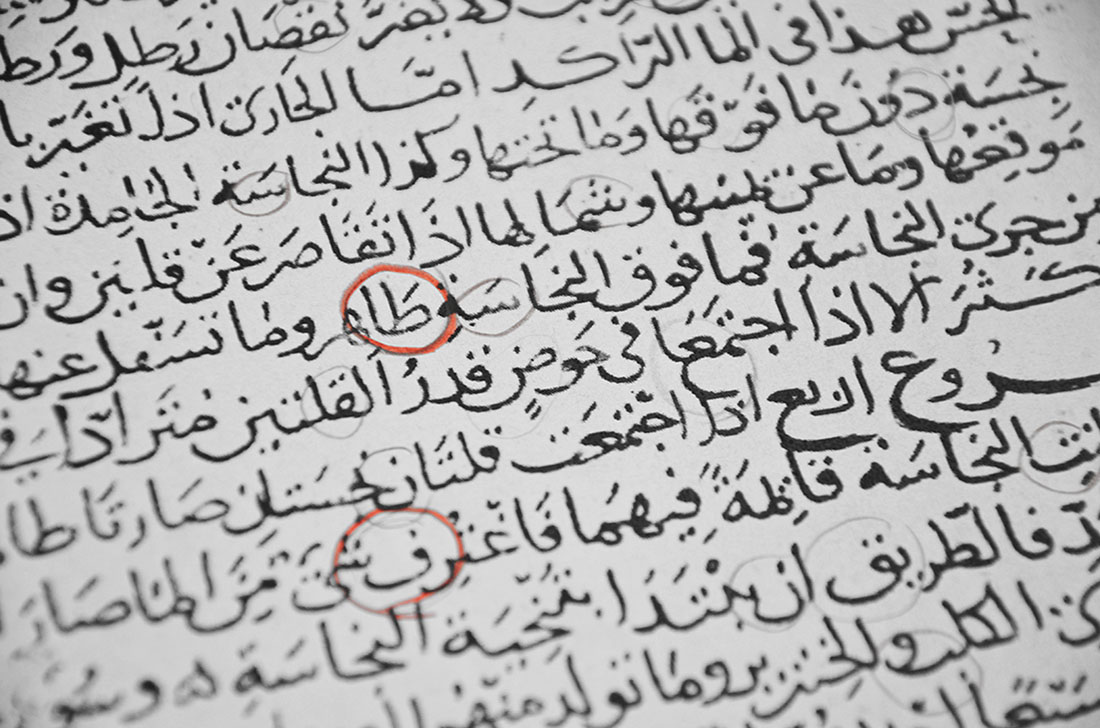 لا يضر نقصان رطل ورطل
هذا فى الما الرّاكد امّا الجارى اذا تغيّر با
نجسة دون ما فوقها وما تحتها وكذا النجاسة الجامدة اذ
موقعها وما عن يمينها وشمالها اذا تقاصر عن قلتين وان
من جرى النجاسة فما فوق النجاسة طاهر وما تسفل عنها
كثر الا اذا اجتمعا فى حوض قدر القلتين
اذا اجتمعت قلتان نجستان صارتا طا
النجاسة قائمة فيهما فاغترف شى من الما صار
فالطريق ان يبتدا بتنحية النجاسة
الكلب والخنزير وما تولد منهما